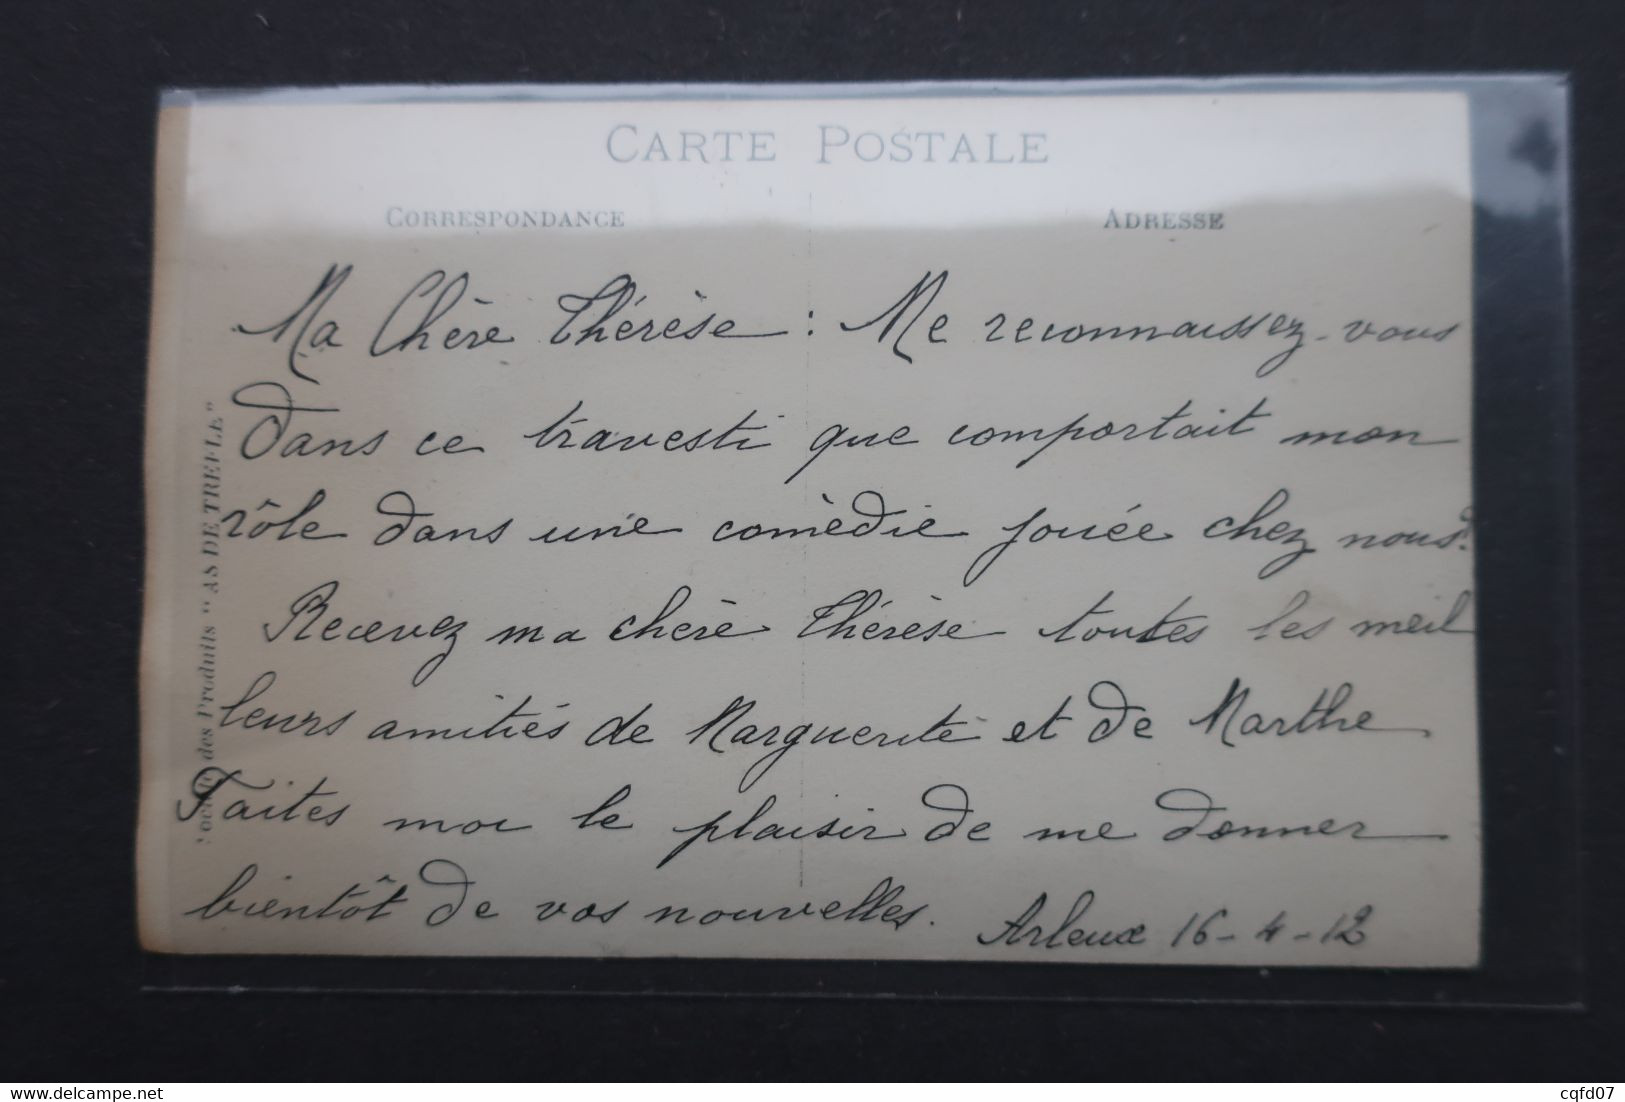 CARTE POSTALE
CORRESPONDANCE
ADRESSE
Ma Chère Thérèse : Me reconnaissez-vous
dans ce travesti que comportait mon
rôle dans une comèdie jouée chez nous?
Recevez ma chère Thérèse toutes les meil
leurs amitiés de Marguerite et de Marthe
Faites moi le plaisir de me donner
bientôt de vos nouvelles.
Arleux 16-4-12
des Produits "AS DE TREFLE"
www.delcampe.net
cqfd07